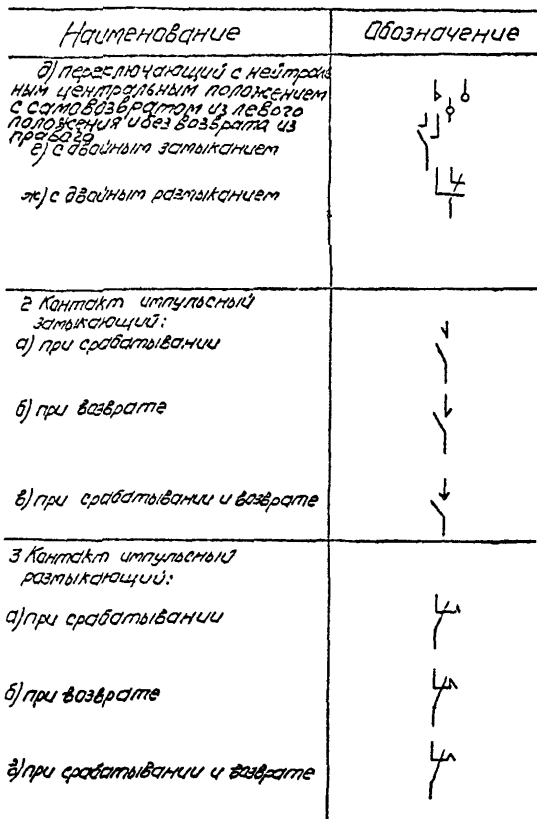 Наименование
Обозначение
д) переключающий с нейтраль
ным центральным положением
с самовозвратом из левого
положения и без возврата из
правого
е) с двойным замыканием
ж) с двойным размыканием
2 Контакт импульсный
замыкающий:
а) при срабатывании
б) при возврате
в) при срабатывании и возврате
3 Контакт импульсный
размыкающий:
а) при срабатывании
б) при возврате
в) при срабатывании и возврате